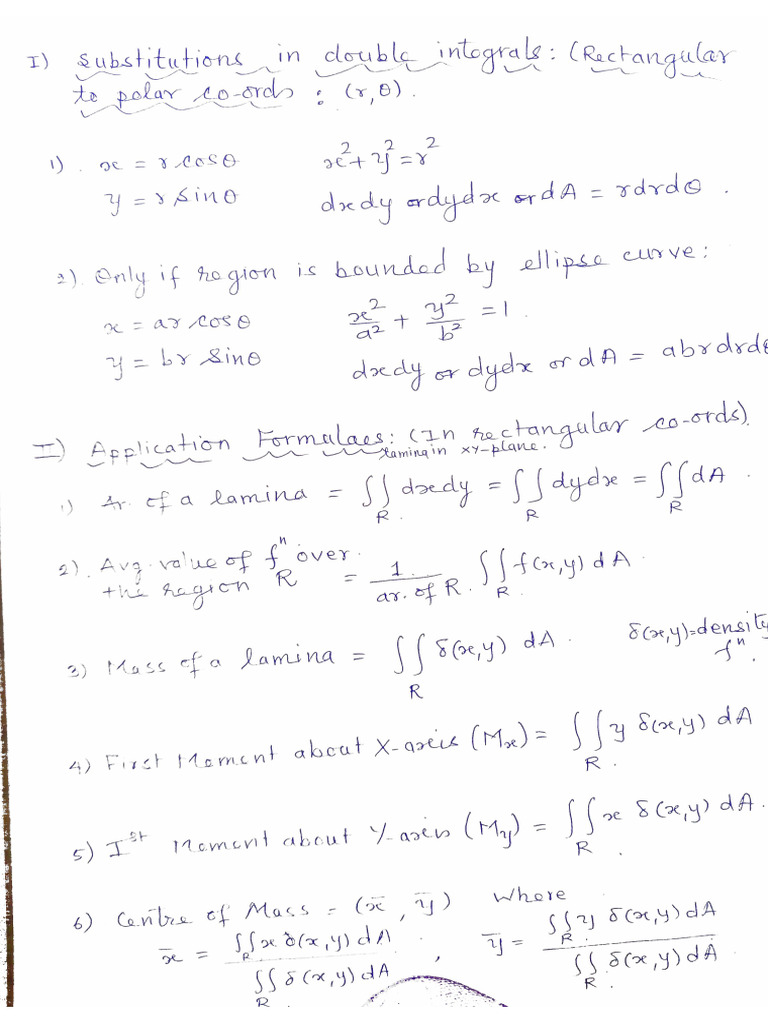 I) Substitutions in double integrals: (Rectangular
to polar co-ords : (r, θ).
1). x = r cosθ x² + y² = r²
y = r sinθ dxdy or dydx or dA = rdrdθ .
2). Only if region is bounded by ellipse curve:
x = ar cosθ x²/a² + y²/b² = 1 .
y = br sinθ dxdy or dydx or dA = abrdrdθ
II) Application Formulaes: (In rectangular co-ords).
lamina in xy-plane.
1) Ar. of a lamina = ∫∫_R dxdy = ∫∫_R dydx = ∫∫_R dA .
2). Avg. value of fⁿ over
the region R = 1/ar. of R. ∫∫_R f(x,y) dA .
3) Mass of a lamina = ∫∫_R δ(x,y) dA . δ(x,y)=density
fⁿ.
4) First Moment about X-axis (Mx) = ∫∫_R y δ(x,y) dA
5) Iˢᵗ Moment about Y-axis (My) = ∫∫_R x δ(x,y) dA .
6) Centre of Mass = (x̄, ȳ) where
x̄ = ∫∫_R x δ(x,y) dA / ∫∫_R δ(x,y) dA , ȳ = ∫∫_R y δ(x,y) dA / ∫∫_R δ(x,y) dA